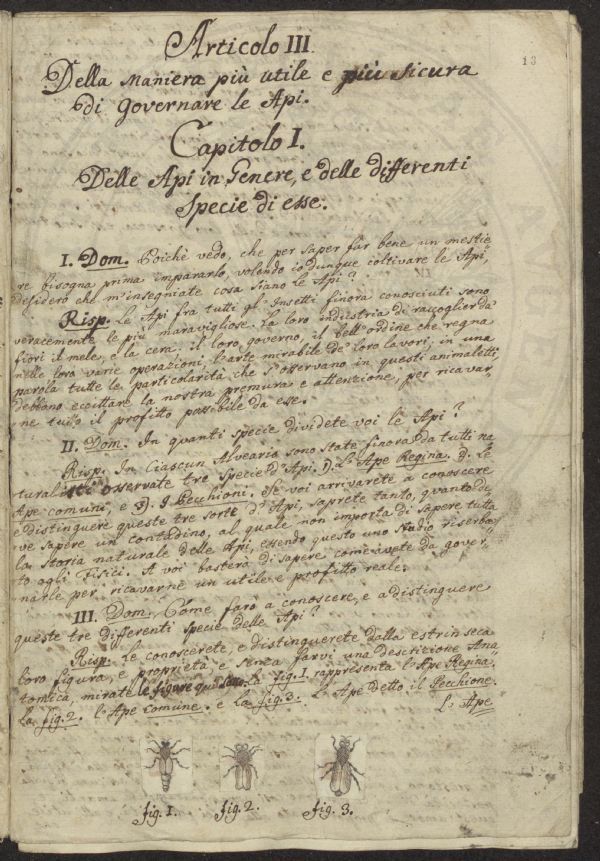 13
Articolo III.
Della Maniera più utile e più sicura
di governare le Api.
Capitolo I.
Delle Api in Genere, e delle differenti
Specie di esse.
I. Dom. Poichè vedo, che per saper far bene un mestie
re bisogna prima impararlo, volendo io dunque coltivare le Api,
desidero che m'insegniate cosa siano le Api?
Risp. Le Api fra tutti gl' Insetti finora conosciuti sono
veracemente le più maravigliose. La loro industria di raccoglier da'
fiori il mele, e la cera. il loro governo, il bell'ordine che regna
nelle loro varie operazioni, l'arte mirabile de' loro lavori, in una
parola tutte le particolarità che s'osservano in questi animaletti,
debbono eccittare la nostra premura e attenzione, per ricavar,
ne tutto il profitto possibile da esse.
II. Dom. In quanti specie dividete voi le Api?
Risp. In Ciascun Alveario sono state finora da tutti na
turalisti osservate tre Specie d'Api. 1). L'Ape Regina. 2. Le
Ape comuni, e 3). I Pecchioni. Se voi arrivarete a conoscere
e distinguere queste tre sorte d'Api, saprete tanto, quanto de
ve sapere un contadino, al quale non importa di sapere tutta
la storia naturale delle Api, essendo questo uno studio riserba
to agli Fisici. A voi basterà di sapere come avete da gover,
narle per ricavarne un utile e profitto reale.
III. Dom. Come farò a conoscere, e a distinguere
queste tre differenti specie delle Api?
Risp. Le conoscerete, e distinguerete dalla estrinseca
loro figura, e proprietà, e senza farvi una descritione Ana,
tomica, mirate le figure qui sotto. La fig. 1. rappresenta l'Ape Regina.
La fig. 2. l'Ape comune. e la fig. 3. l'Ape detto il Pecchione.
L'Ape
fig. 1. fig. 2. fig. 3.